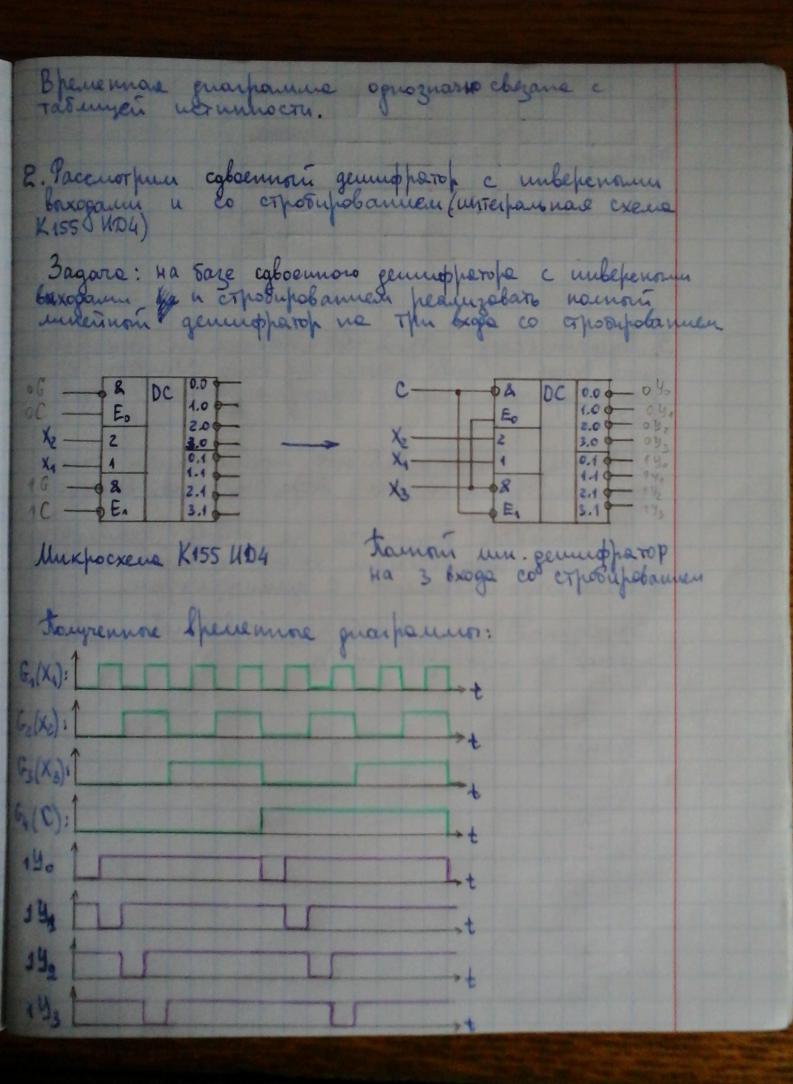 Временная диаграмма однозначно связана с
таблицей истинности.
2. Рассмотрим сдвоенный дешифратор с инверсными
выходами и со стробированием (интегральная схема
К155 ИД4)
Задача: на базе сдвоенного дешифратора с инверсными
выходами и стробированием реализовать полный
линейный дешифратор на три входа со стробированием
0G & DC 0.0
0C E₀ 1.0
2.0
X₂ 2 3.0
X₁ 1 0.1
1.1
1G & 2.1
1C E₁ 3.1
C & DC 0.0 0Y₀
E₀ 1.0 0Y₁
2.0 0Y₂
X₂ 2 3.0 0Y₃
X₁ 1 0.1 1Y₀
1.1 1Y₁
X₃ & 2.1 1Y₂
E₁ 3.1 1Y₃
Микросхема К155 ИД4
Полный лин. дешифратор
на 3 входа со стробированием
Полученные временные диаграммы:
G₁(X₁): t
G₂(X₂): t
G₃(X₃): t
G₄(C): t
1Y₀ t
1Y₁ t
1Y₂ t
1Y₃ t